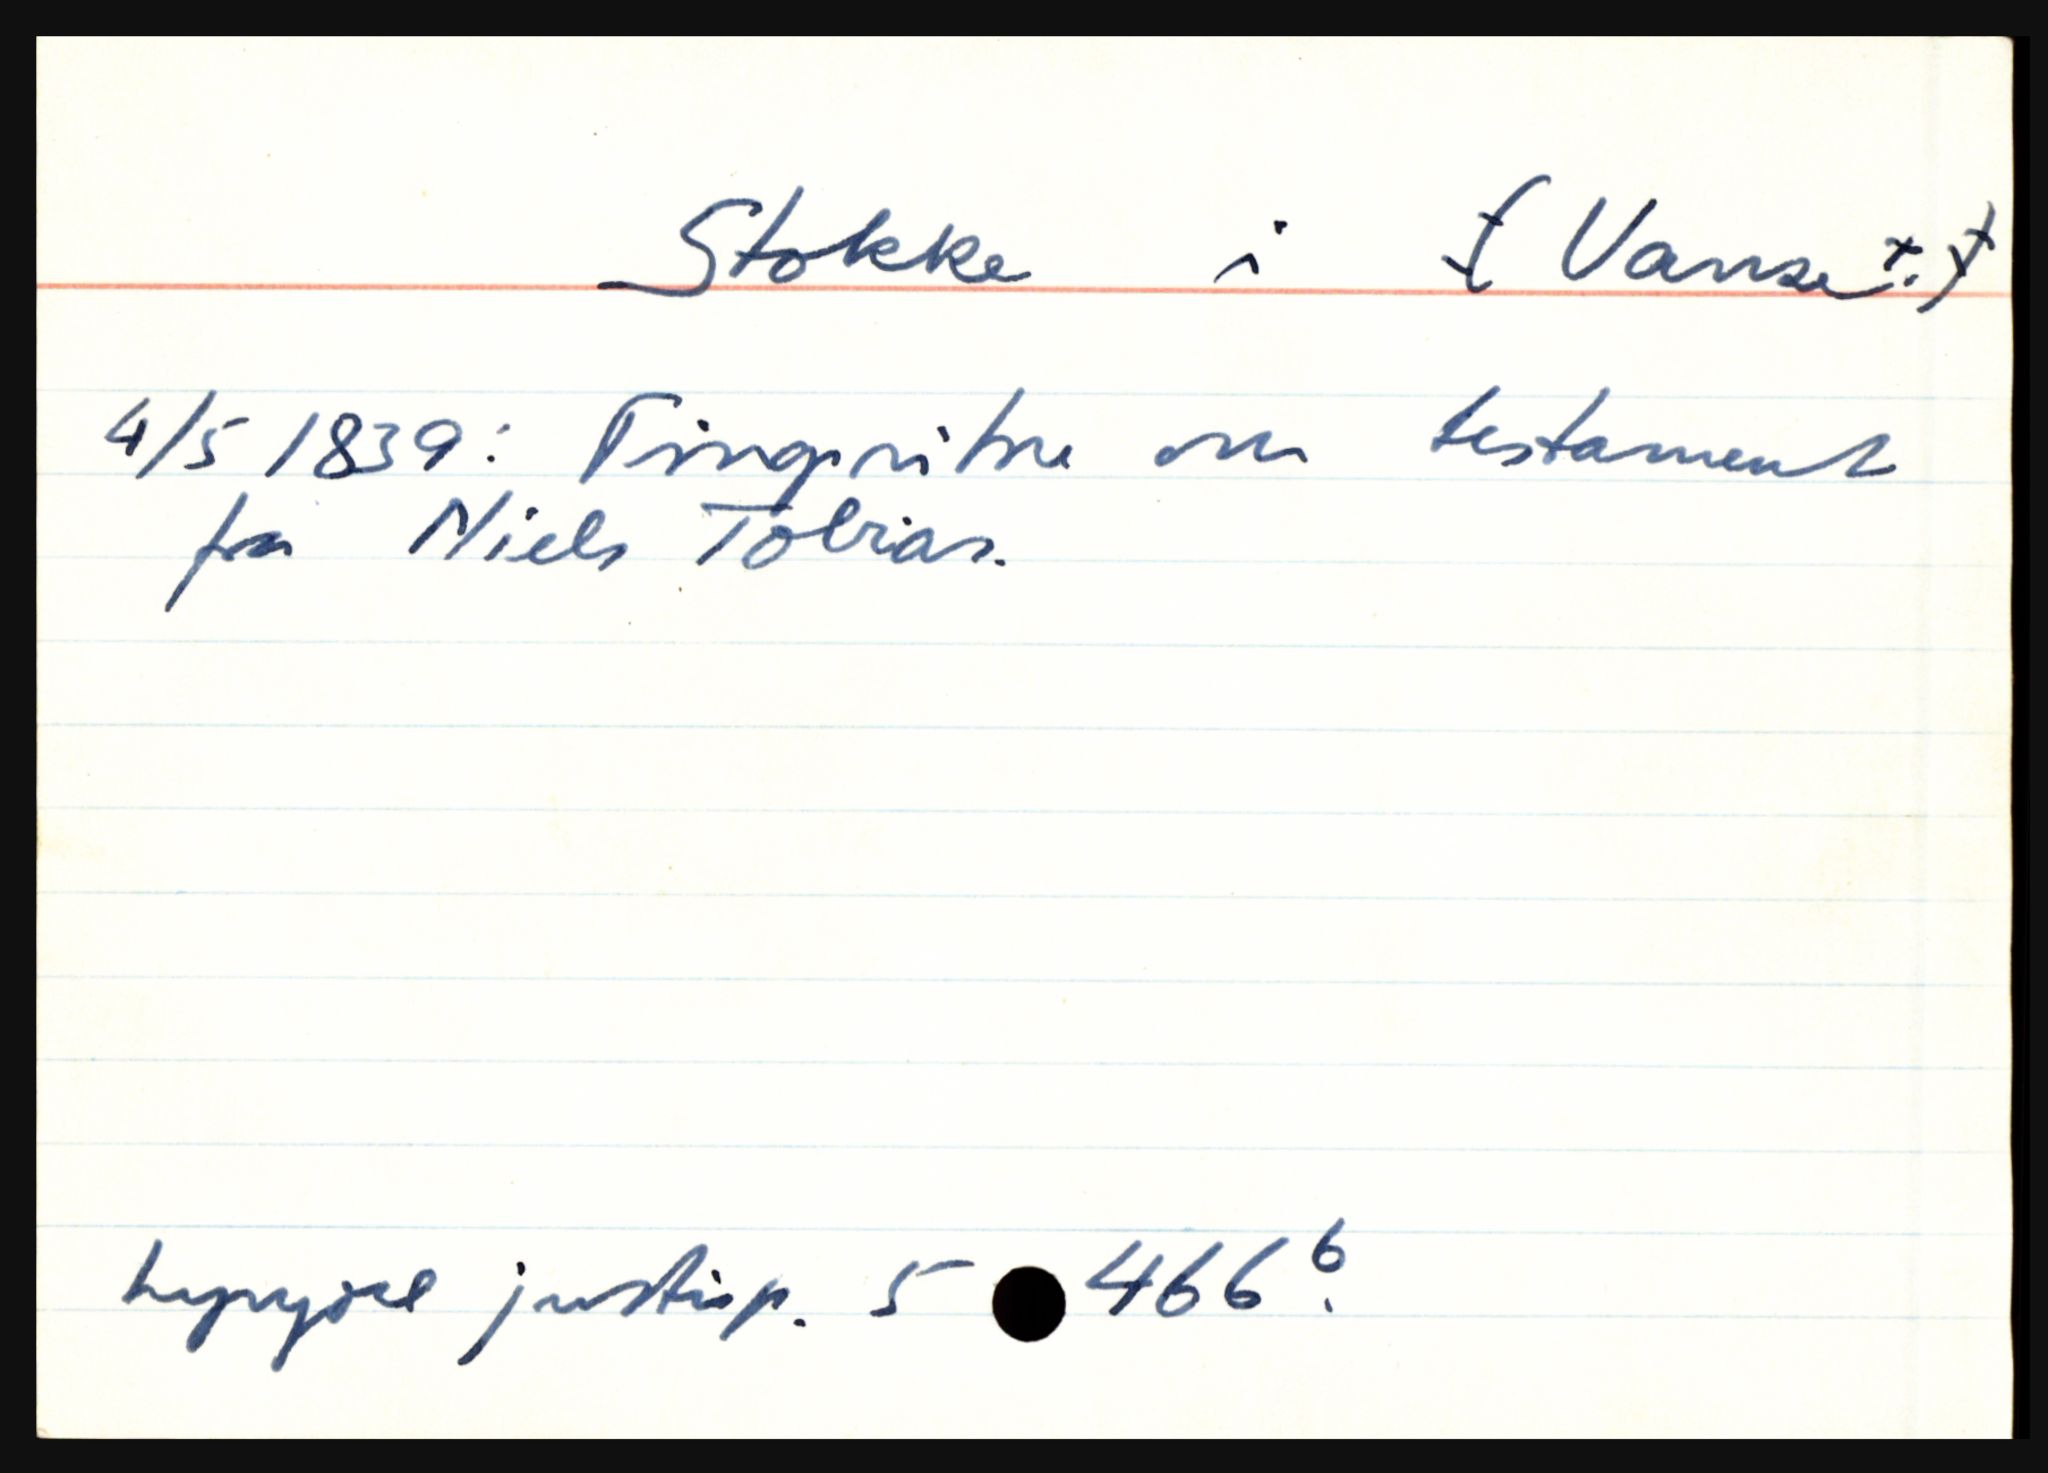 Stokke i (Vanse)
4/5 1839: Tingvitne om testament
fra Niels Tobias.
justisp. 5 466 6.